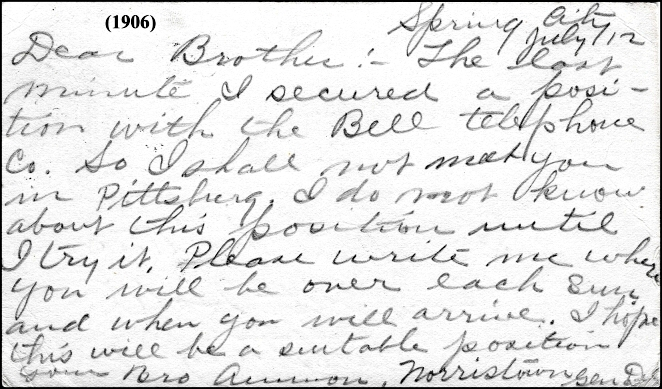 (1906)
Spring City
July 12
Dear Brother:- The last
minute I secured a posi-
tion with the Bell telephone
Co. So I shall not meet you
in Pittsberg. I do not know
about this position until
I try it. Please write me where
you will be over each Sun
and when you will arrive. I hope
this will be a suitable position
Your Bro Ammon, Norristown Gen Del